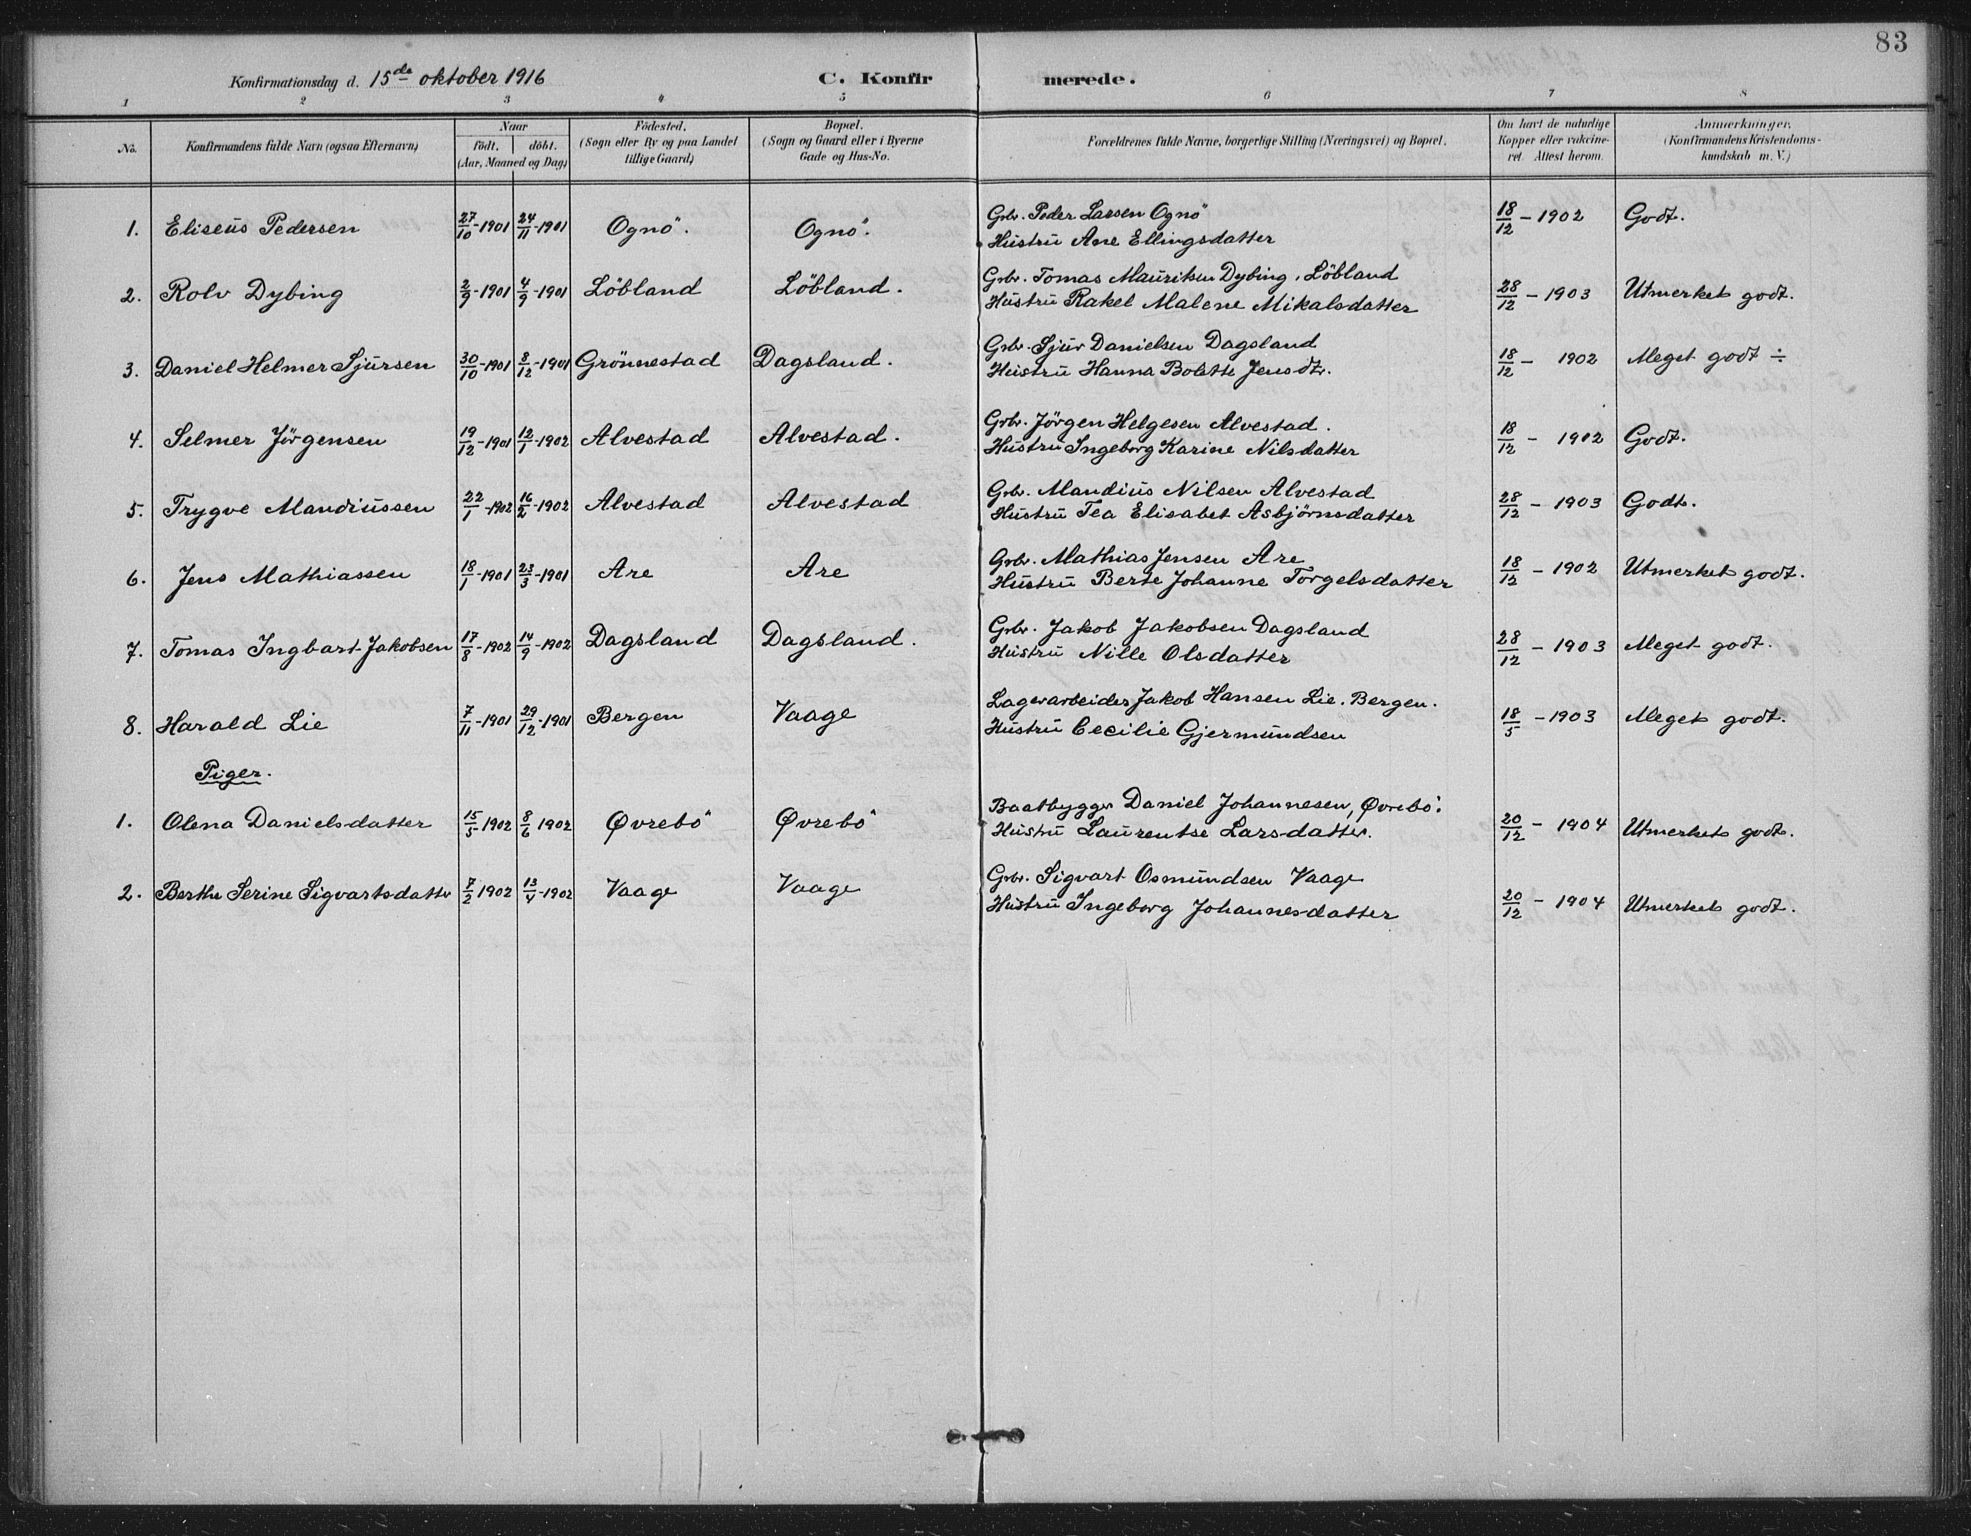 83
Konfirmationsdag d. 15de oktober 1916 C. Konfirmerede.
1 2 3 4 5 6 7 8
No. Konfirmandens fulde Navn (ogsaa Efternavn) Naar födt. döbt. (Aar, Maaned og Dag) Födested. (Sogn eller By og paa Landet tillige Gaard) Bopæl. (Sogn og Gaard eller i Byerne Gade og Hus-No. Forældrenes fulde Navne, borgerlige Stilling (Næringsvei) og Bopæl. Om havt de naturlige Kopper eller vakcineret. Attest herom. Anmærkninger. (Konfirmandens Kristendomskundskab m. V.)
1. Eliseus Pedersen 27/10-1901 24/11-1901 Ognö. Ognö. Grbr. Peder Larsen Ognö 18/12 - 1902 Godt.
Hustru Ane Ellingsdatter
2. Rolv Dybing 2/9-1901 4/9-1901 Löbland Löbland. Grbr. Tomas Mauritsen Dybing, Löbland 28/12 - 1903 Utmerket godt.
Hustru Rakel Malene Mikalsdatter
3. Daniel Helmer Sjursen 30/10-1901 8/12-1901 Grönnestad Dagsland. Grbr. Sjur Danielsen Dagsland 18/12 - 1902 Meget godt ÷
Hustru Hanna Bolette Jensdtr.
4. Selmer Jörgensen 19/12-1901 12/1-1902 Alvestad Alvestad. Grbr. Jörgen Helgesen Alvestad. 18/12 - 1902 Godt.
Hustru Ingeborg Karine Nilsdatter
5. Trygve Mandiussen 22/1-1902 16/2-1902 Alvestad Alvestad Grbr. Mandius Nilsen Alvestad 28/12 - 1903 Godt.
Hustru Tea Elisabet Asbjörnsdatter
6. Jens Mathiassen 18/1-1901 23/3-1901 Are Are Grbr. Mathias Jensen Are 18/12 - 1902 Utmerket godt.
Hustru Berte Johanne Torgelsdatter
7. Tomas Ingbart Jakobsen 17/8-1902 14/9-1902 Dagsland Dagsland. Grbr. Jakob Jakobsen Dagsland 28/12 - 1903 Meget godt.
Hustru Nille Olsdatter
8. Harald Lie 7/11-1901 29/12-1901 Bergen Vaage Lagerarbeider Jakob Hansen Lie. Bergen. 18/5 - 1903 Meget godt.
Hustru Cecilie Gjermundsen
Piger.
1. Olena Danielsdatter 15/5 1902 8/6 1902 Øvrebö Øvrebö Baatbygger Daniel Johannesen, Øvrebö. 20/12 - 1904 Utmerket godt.
Hustru Laurentse Larsdatter.
2. Berthe Serine Sigvartsdatter 7/2 1902 13/4-1902 Vaage Vaage Grbr. Sigvart Osmundsen Vaage 20/12 - 1904 Utmerket godt.
Hustru Ingeborg Johannesdatter